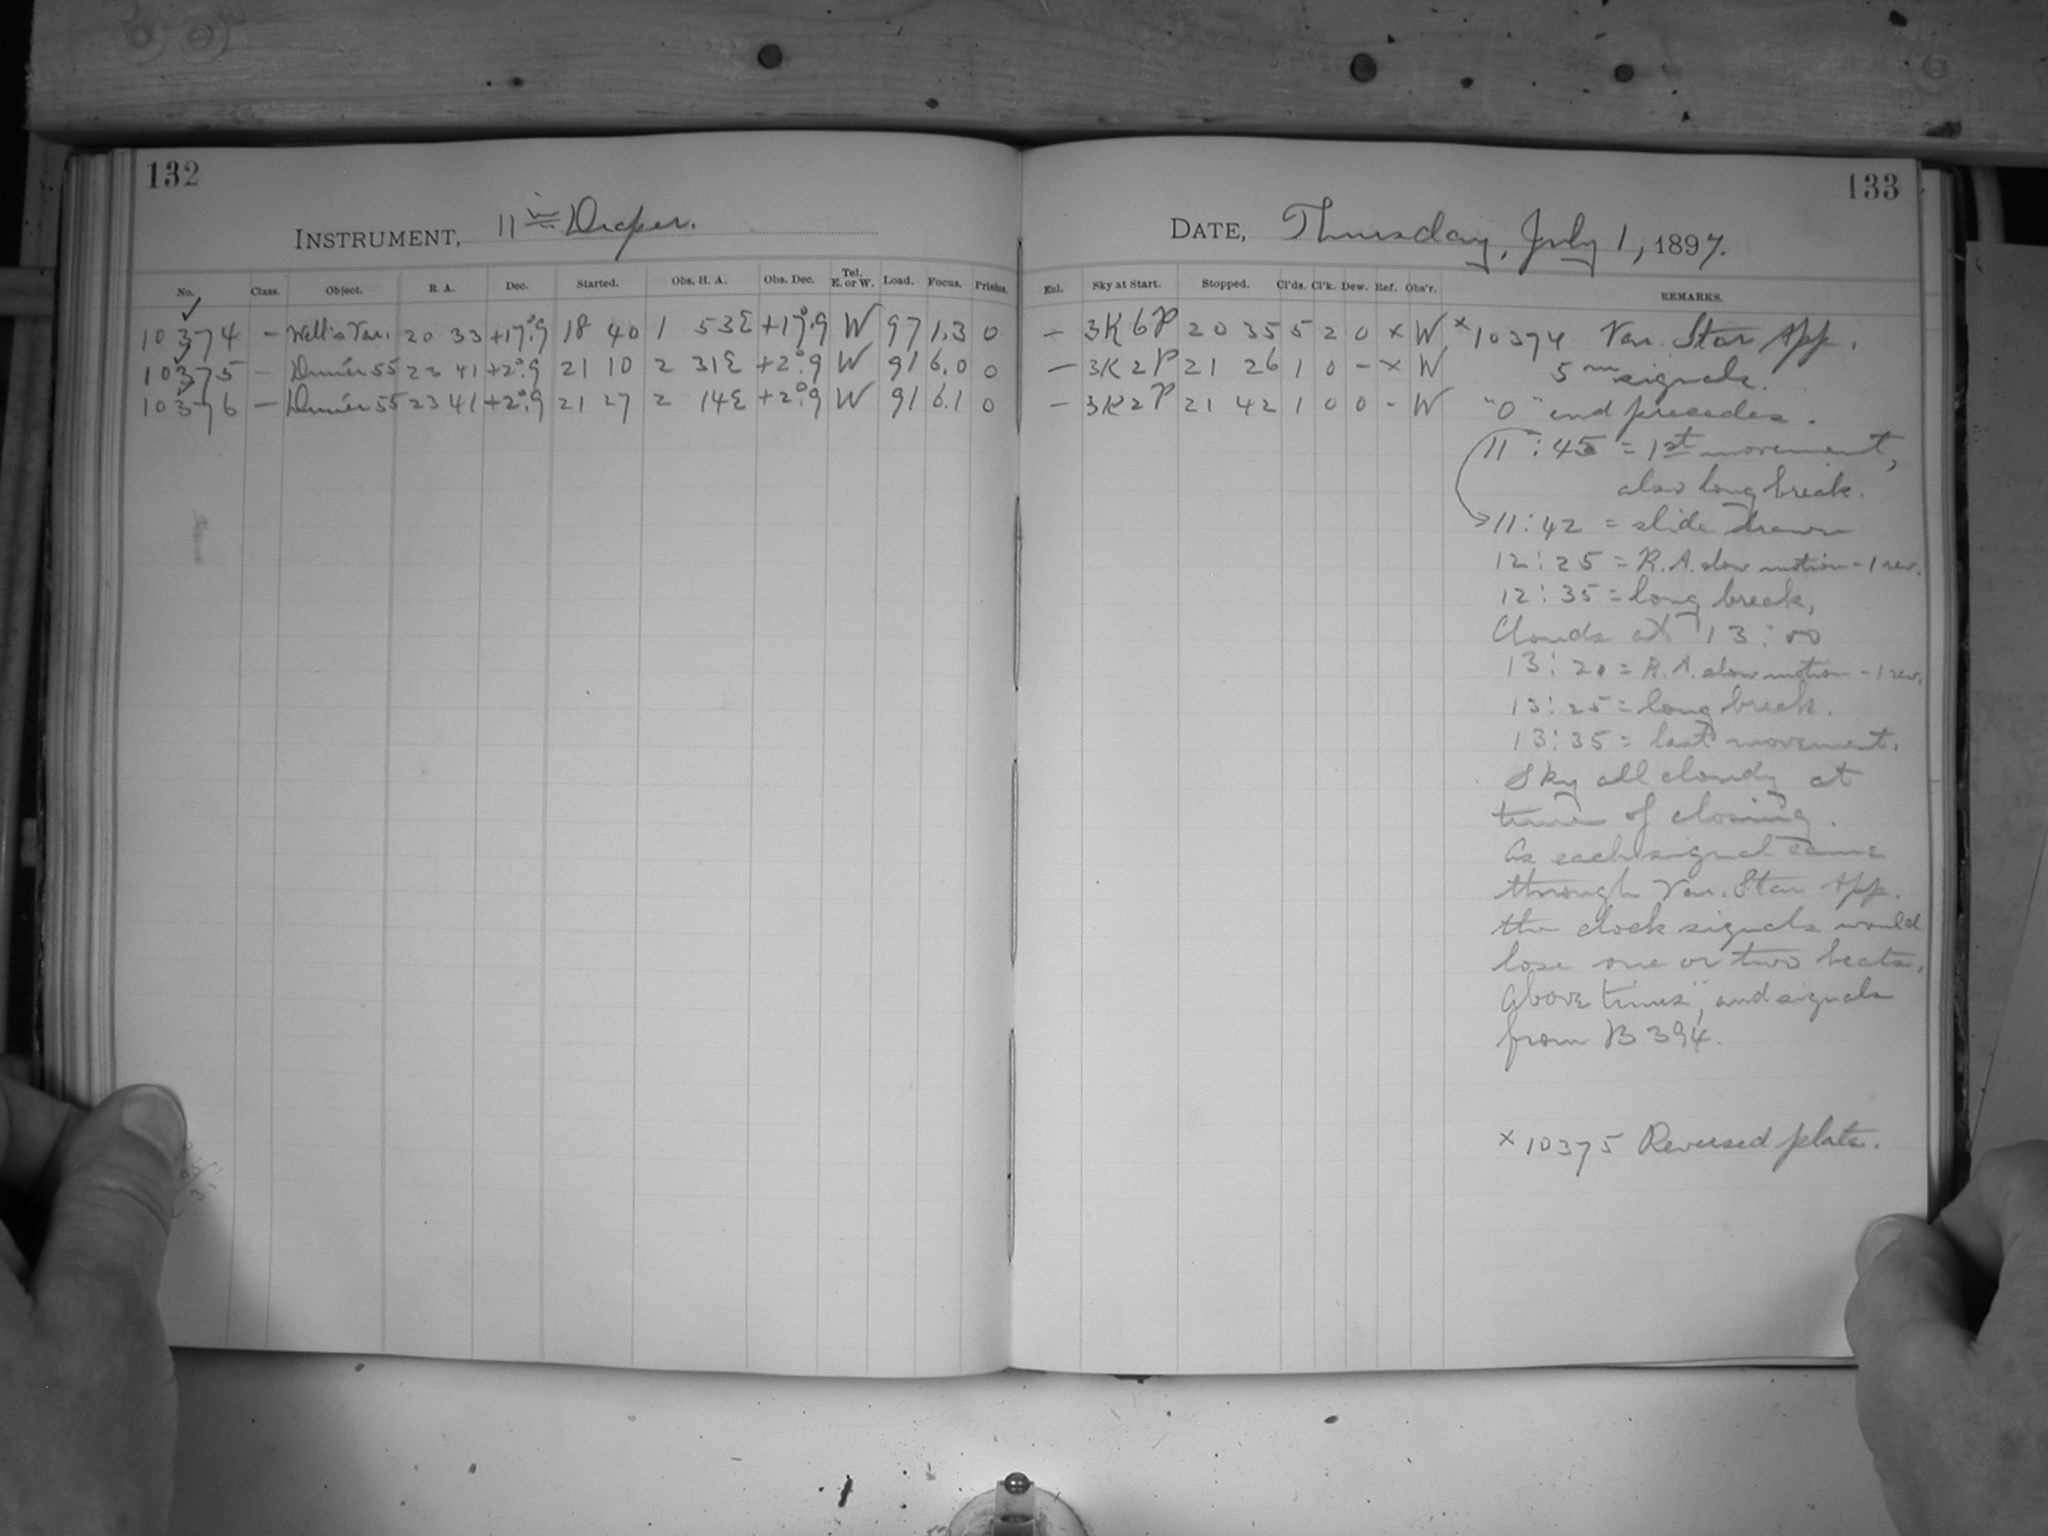 132
INSTRUMENT, 11 in Draper.
No. Class. Object. R. A. Dec. Started. Obs. H. A. Obs. Dec. Tel. E. or W. Load. Focus. Prisms.
10374 – Well's Var. 20 33 +17°.9 18 40 1 53E +17°.9 W 97 1.3 0
10375 – Dunér 55 23 41 +2°.9 21 10 2 31E +2°.9 W 91 6.0 0
10376 – Dunér 55 23 41 +2°.9 21 27 2 14E +2°.9 W 91 6.1 0
133
DATE, Thursday, July 1, 1897.
Enl. Sky at Start. Stopped. Cl'ds. Cl'k. Dew. Ref. Obs'r. REMARKS.
– 3K6P 20 35 5 2 0 x W x10374 Var. Star App.
– 3K2P 21 26 1 0 – x W 5m signals.
– 3K2P 21 42 1 0 0 - W "0" end precedes.
11:45 = 1st movement,
also long break.
11:42 = slide drawn
12:25 = R.A. slow motion - 1 rev.
12:35 = long break,
Clouds at 13:00
13:20 = R.A. slow motion - 1 rev.
13:25 = long break.
13:35 = last movement.
Sky all cloudy at
time of closing.
As each signal came
through Var. Star App.
the clock signals would
lose one or two beats.
Above times, and signals
from B 394.
x 10375 Reversed plate.